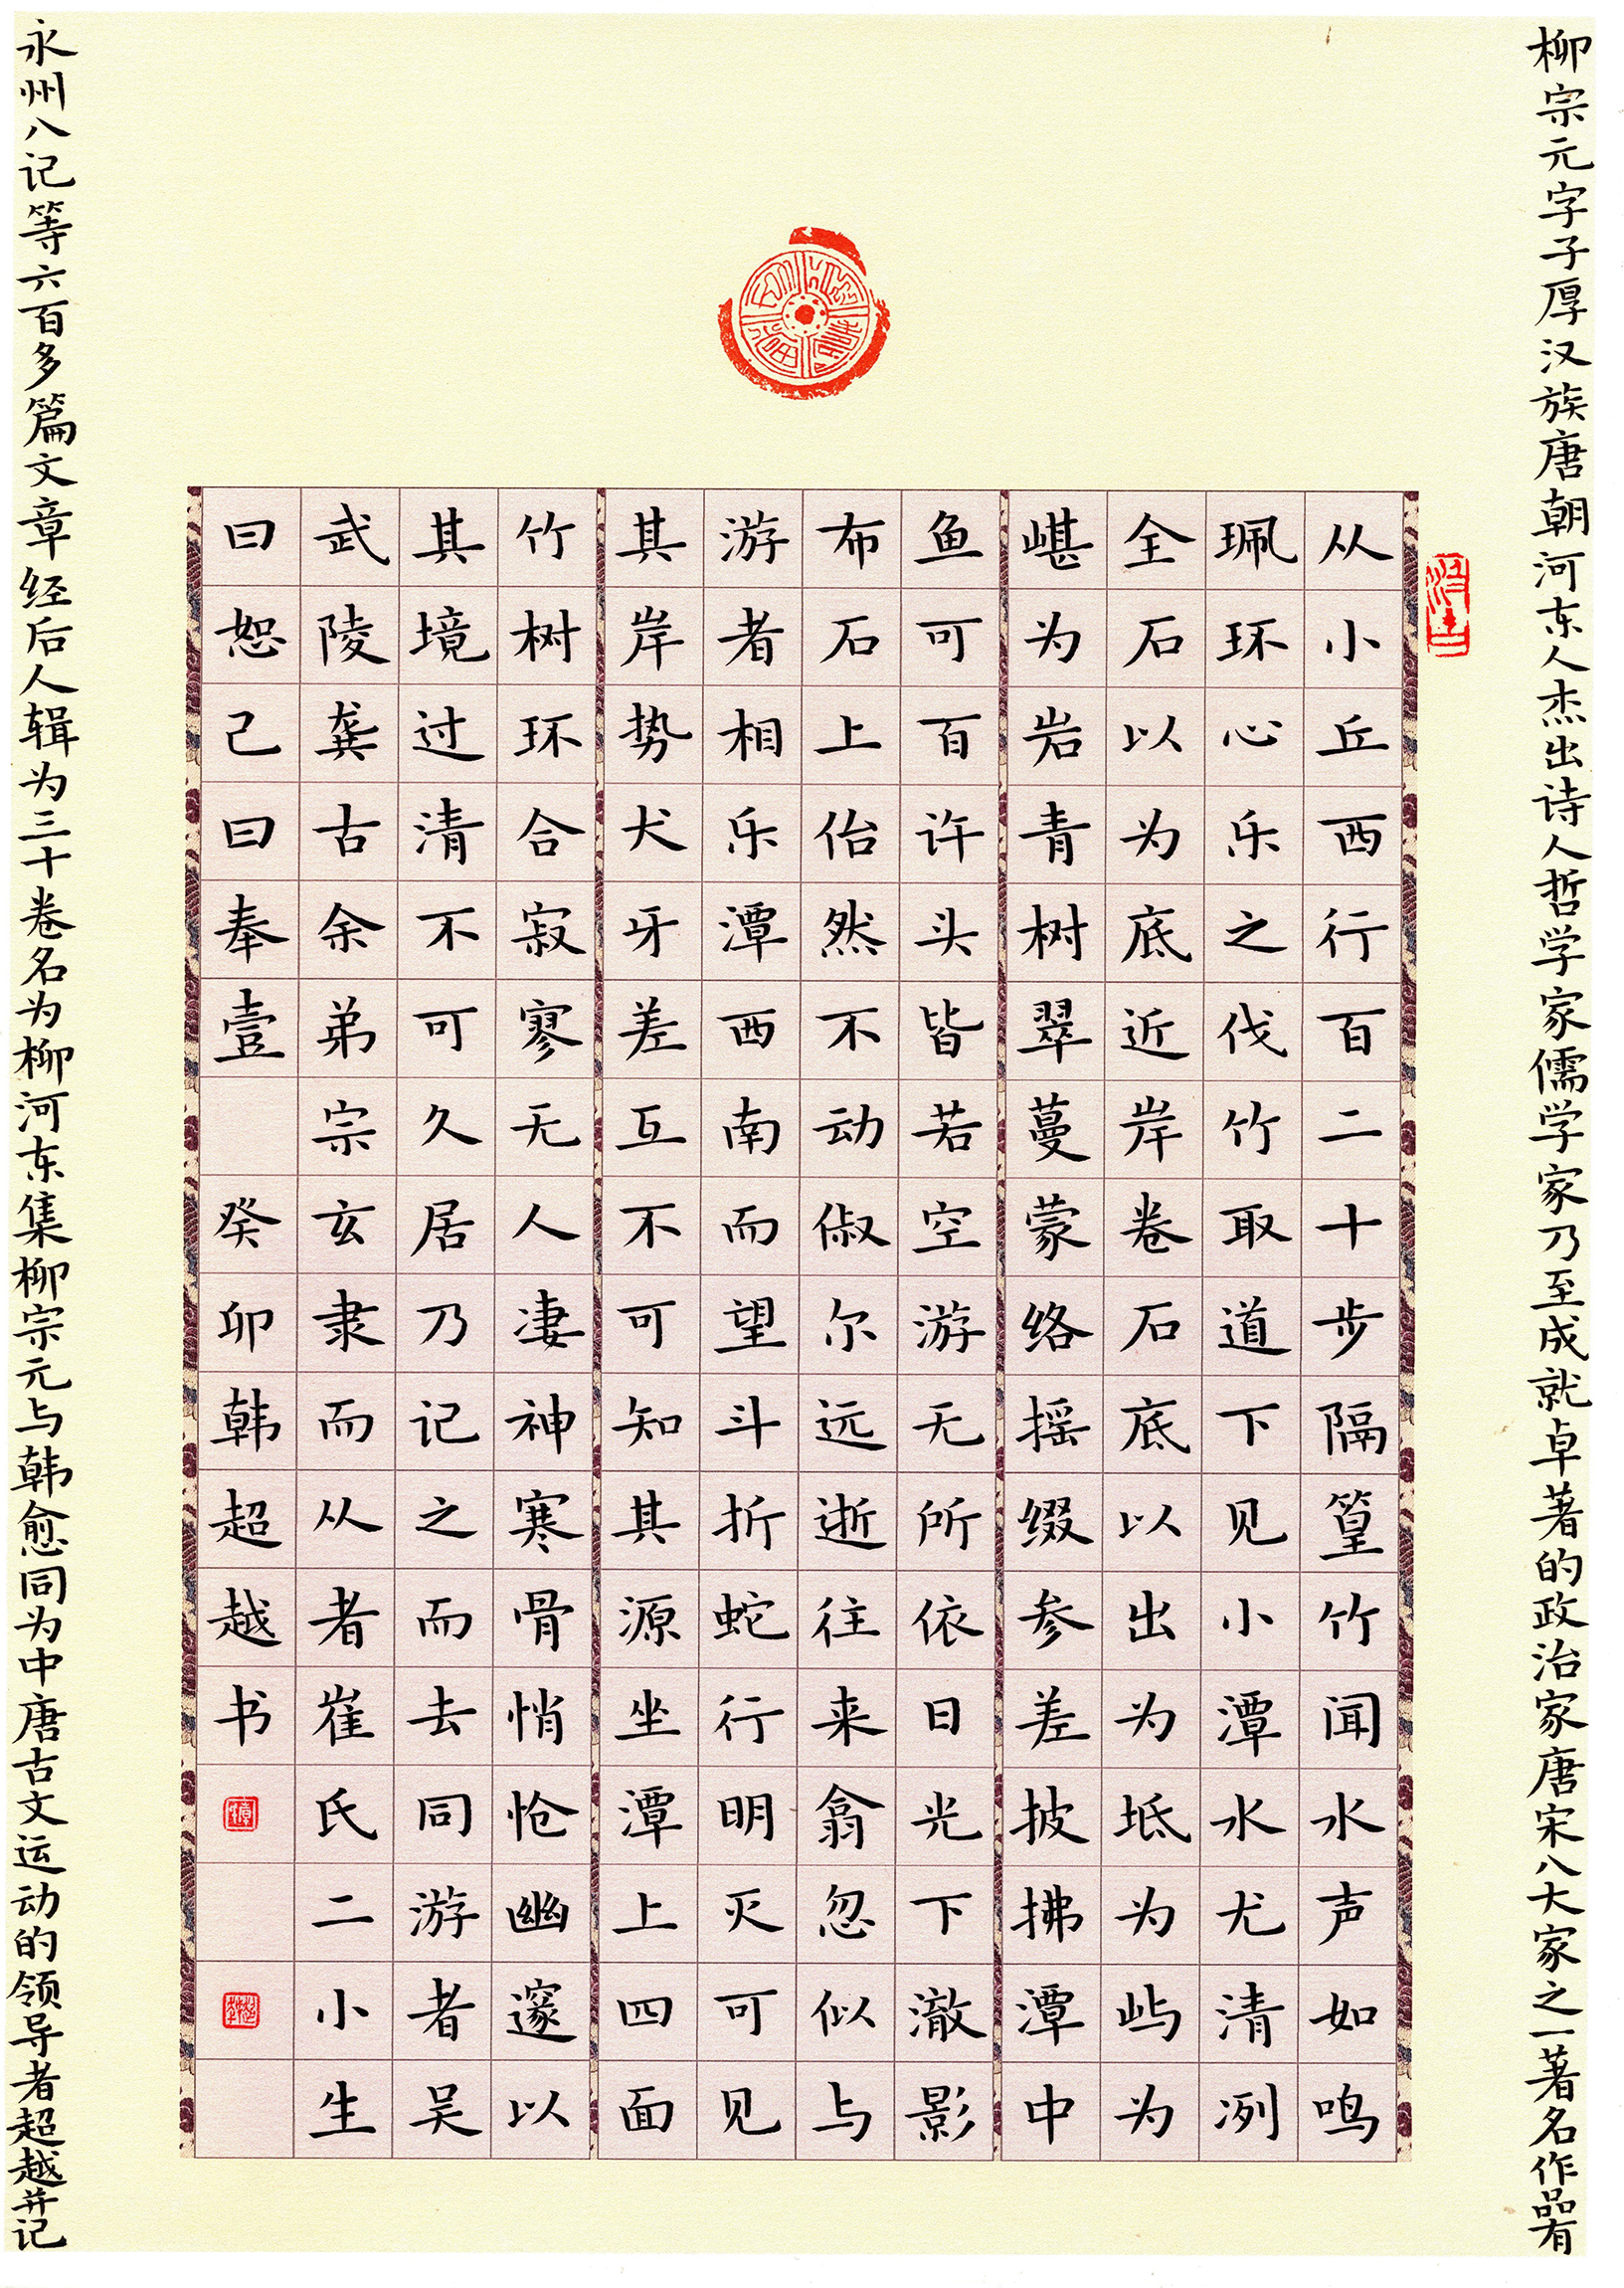 柳宗元字子厚汉族唐朝河东人杰出诗人哲学家儒学家乃至成就卓著的政治家唐宋八大家之一著名作品有
从小丘西行百二十步隔篁竹闻水声如鸣
珮环心乐之伐竹取道下见小潭水尤清冽
全石以为底近岸卷石底以出为坻为屿为
嵁为岩青树翠蔓蒙络摇缀参差披拂潭中
鱼可百许头皆若空游无所依日光下澈影
布石上佁然不动俶尔远逝往来翕忽似与
游者相乐潭西南而望斗折蛇行明灭可见
其岸势犬牙差互不可知其源坐潭上四面
竹树环合寂寥无人凄神寒骨悄怆幽邃以
其境过清不可久居乃记之而去同游者吴
武陵龚古余弟宗玄隶而从者崔氏二小生
曰恕己曰奉壹 癸卯韩超越书
永州八记等六百多篇文章经后人辑为三十卷名为柳河东集柳宗元与韩愈同为中唐古文运动的领导者超越并记